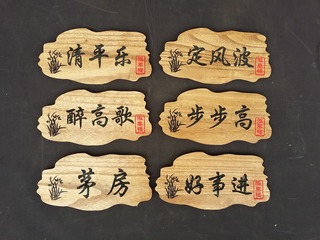 清平乐
定风波
醉高歌
步步高
茅房
好事进